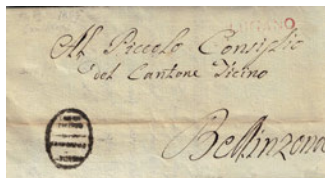 LUGANO
Al Piccolo Consiglio
del Cantone Ticino
Bellinzona